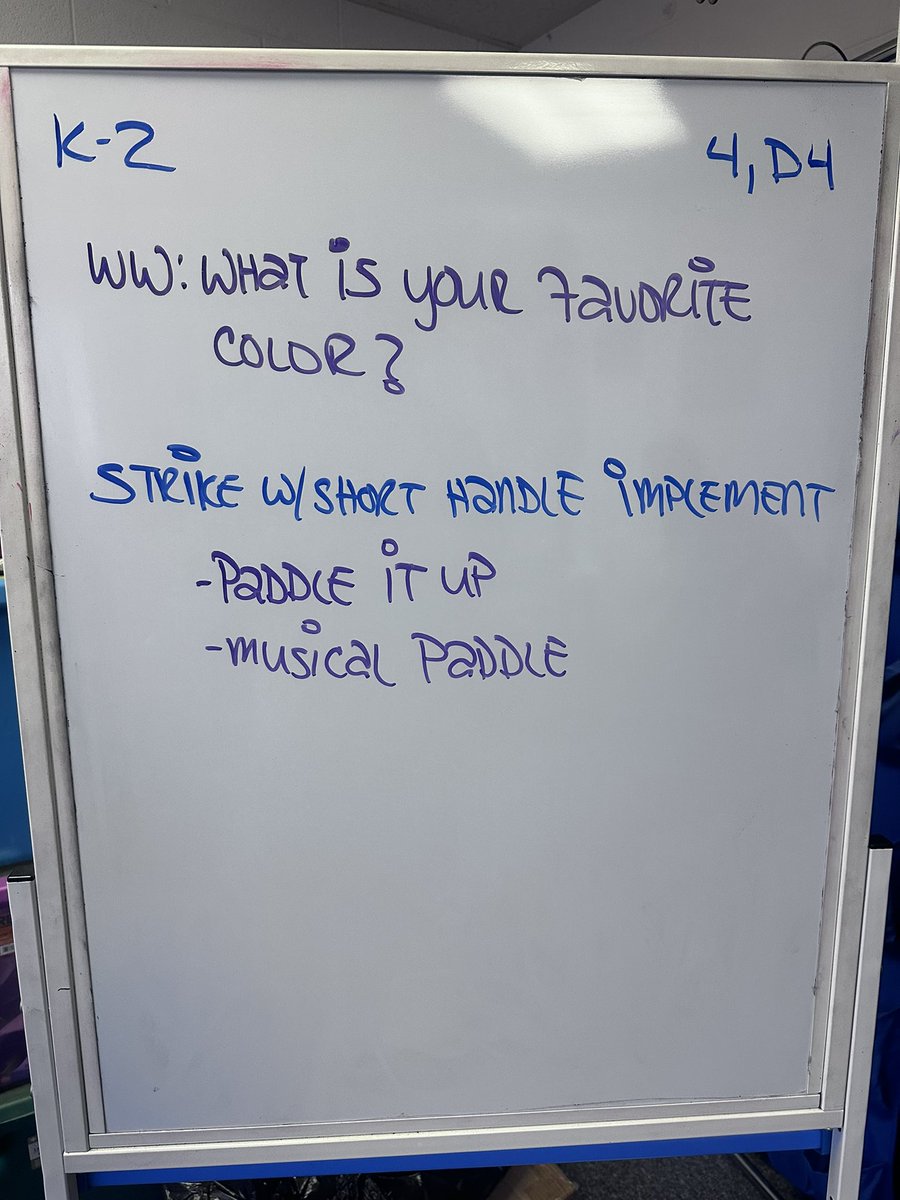 K-2
4, D4
WW: WHaT iS YOUR FavoRiTE
COLOR?
STRiKE W/SHORT HaNDLE iMPLEMENT
-PaDDLE iT UP
-musical PaDDLE